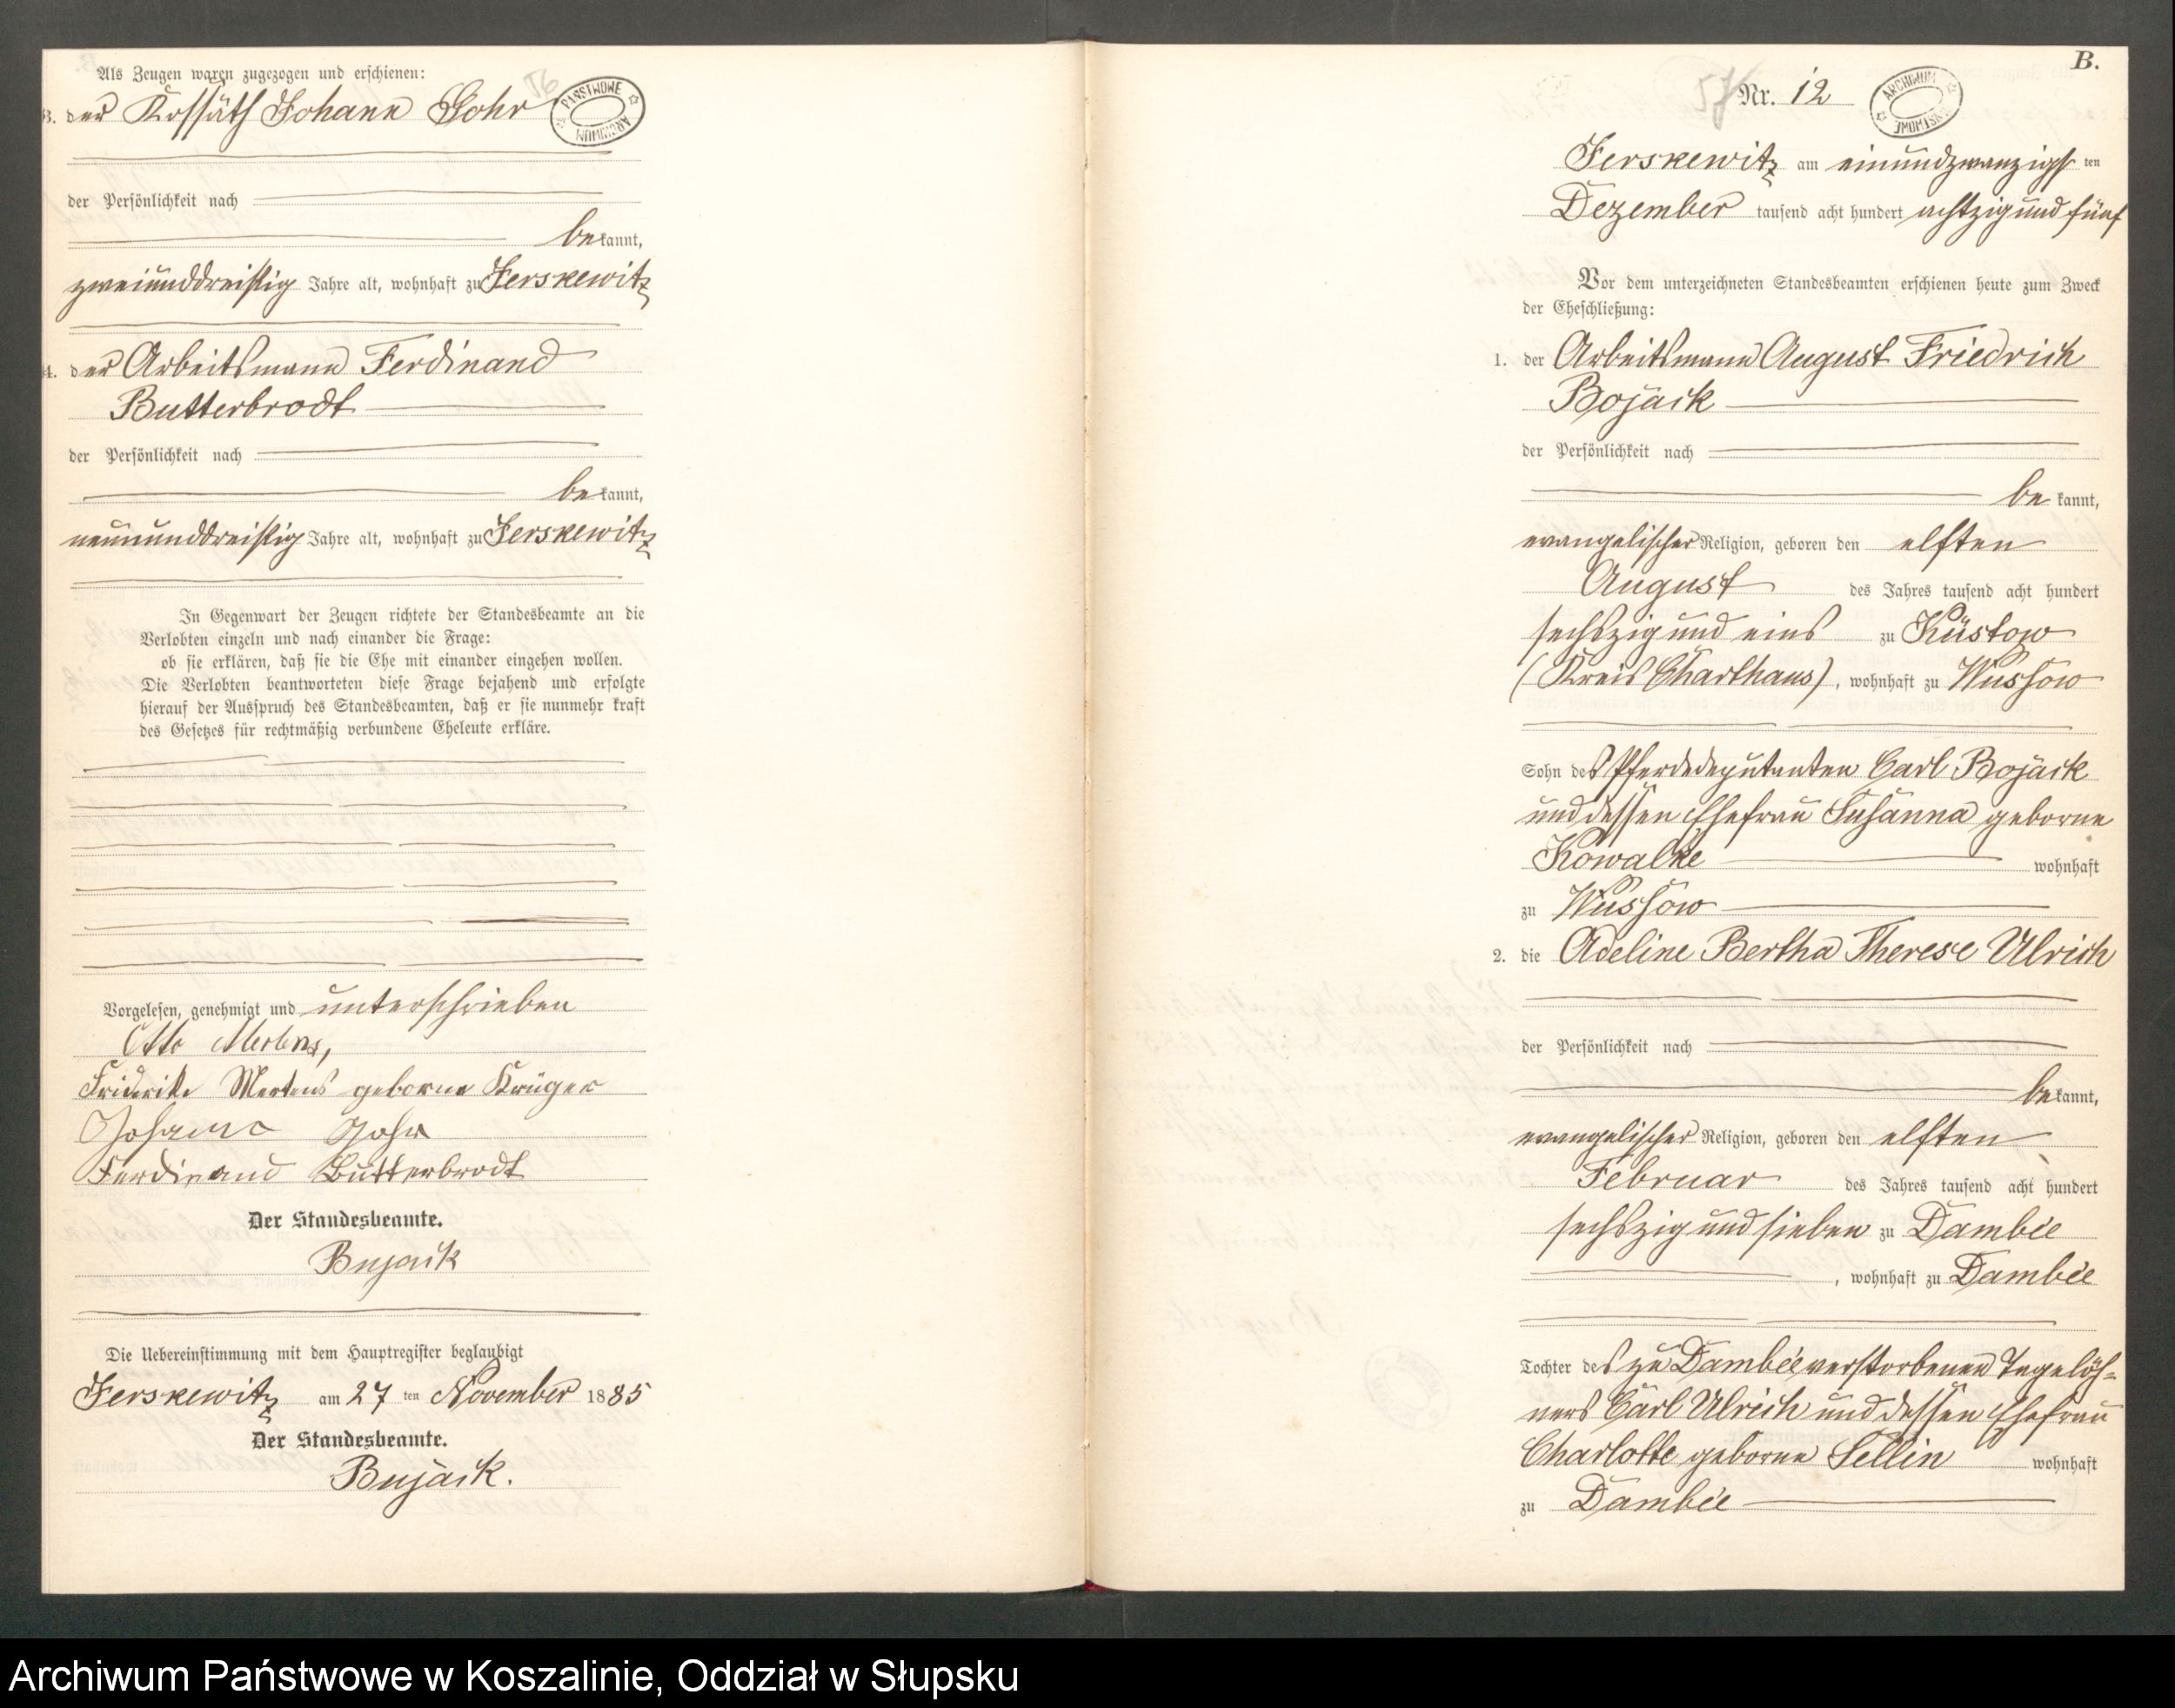 Als Zeugen waren zugezogen und erschienen:
56
3. der Kossäth Johann Gohr
PAŃSTWOWE ARCHIWUM
der Persönlichkeit nach
bekannt,
zweiunddreißig Jahre alt, wohnhaft zu Jerskewitz
4. der Arbeitsmann Ferdinand
Butterbrodt
der Persönlichkeit nach
bekannt,
neununddreißig Jahre alt, wohnhaft zu Jerskewitz
In Gegenwart der Zeugen richtete der Standesbeamte an die
Verlobten einzeln und nach einander die Frage:
ob sie erklären, daß sie die Ehe mit einander eingehen wollen.
Die Verlobten beantworteten diese Frage bejahend und erfolgte
hierauf der Ausspruch des Standesbeamten, daß er sie nunmehr kraft
des Gesetzes für rechtmäßig verbundene Eheleute erkläre.
Vorgelesen, genehmigt und unterschrieben
Otto Mertens,
Friderike Mertens geborne Krüger
Johann Gohr
Ferdinand Butterbrodt
Der Standesbeamte.
Bujack
Die Uebereinstimmung mit dem Hauptregister beglaubigt
Jerskewitz am 27 ten November 1885
Der Standesbeamte.
Bujack.
B.
57
Nr. 12
ARCHIWUM PAŃSTWOWE
Jerskewitz am einundzwanzigsten
Dezember tausend acht hundert achtzig und fünf
Vor dem unterzeichneten Standesbeamten erschienen heute zum Zweck
der Eheschließung:
1. der Arbeitsmann August Friedrich
Bojack
der Persönlichkeit nach
bekannt,
evangelischer Religion, geboren den elften
August des Jahres tausend acht hundert
sechszig und eins zu Küstow
(Kreis Charthaus), wohnhaft zu Wussow
Sohn des Pferdedeputanten Carl Bojack
und dessen Ehefrau Susanna geborne
Kowalke wohnhaft
zu Wussow
2. die Adeline Bertha Therese Ulrich
der Persönlichkeit nach
bekannt,
evangelischer Religion, geboren den elften
Februar des Jahres tausend acht hundert
sechszig und sieben zu Dambée
, wohnhaft zu Dambée
Tochter des zu Dambée verstorbenen Tagelöh-
ners Carl Ulrich und dessen Ehefrau
Charlotte geborne Sellin wohnhaft
zu Dambée
Archiwum Państwowe w Koszalinie, Oddział w Słupsku